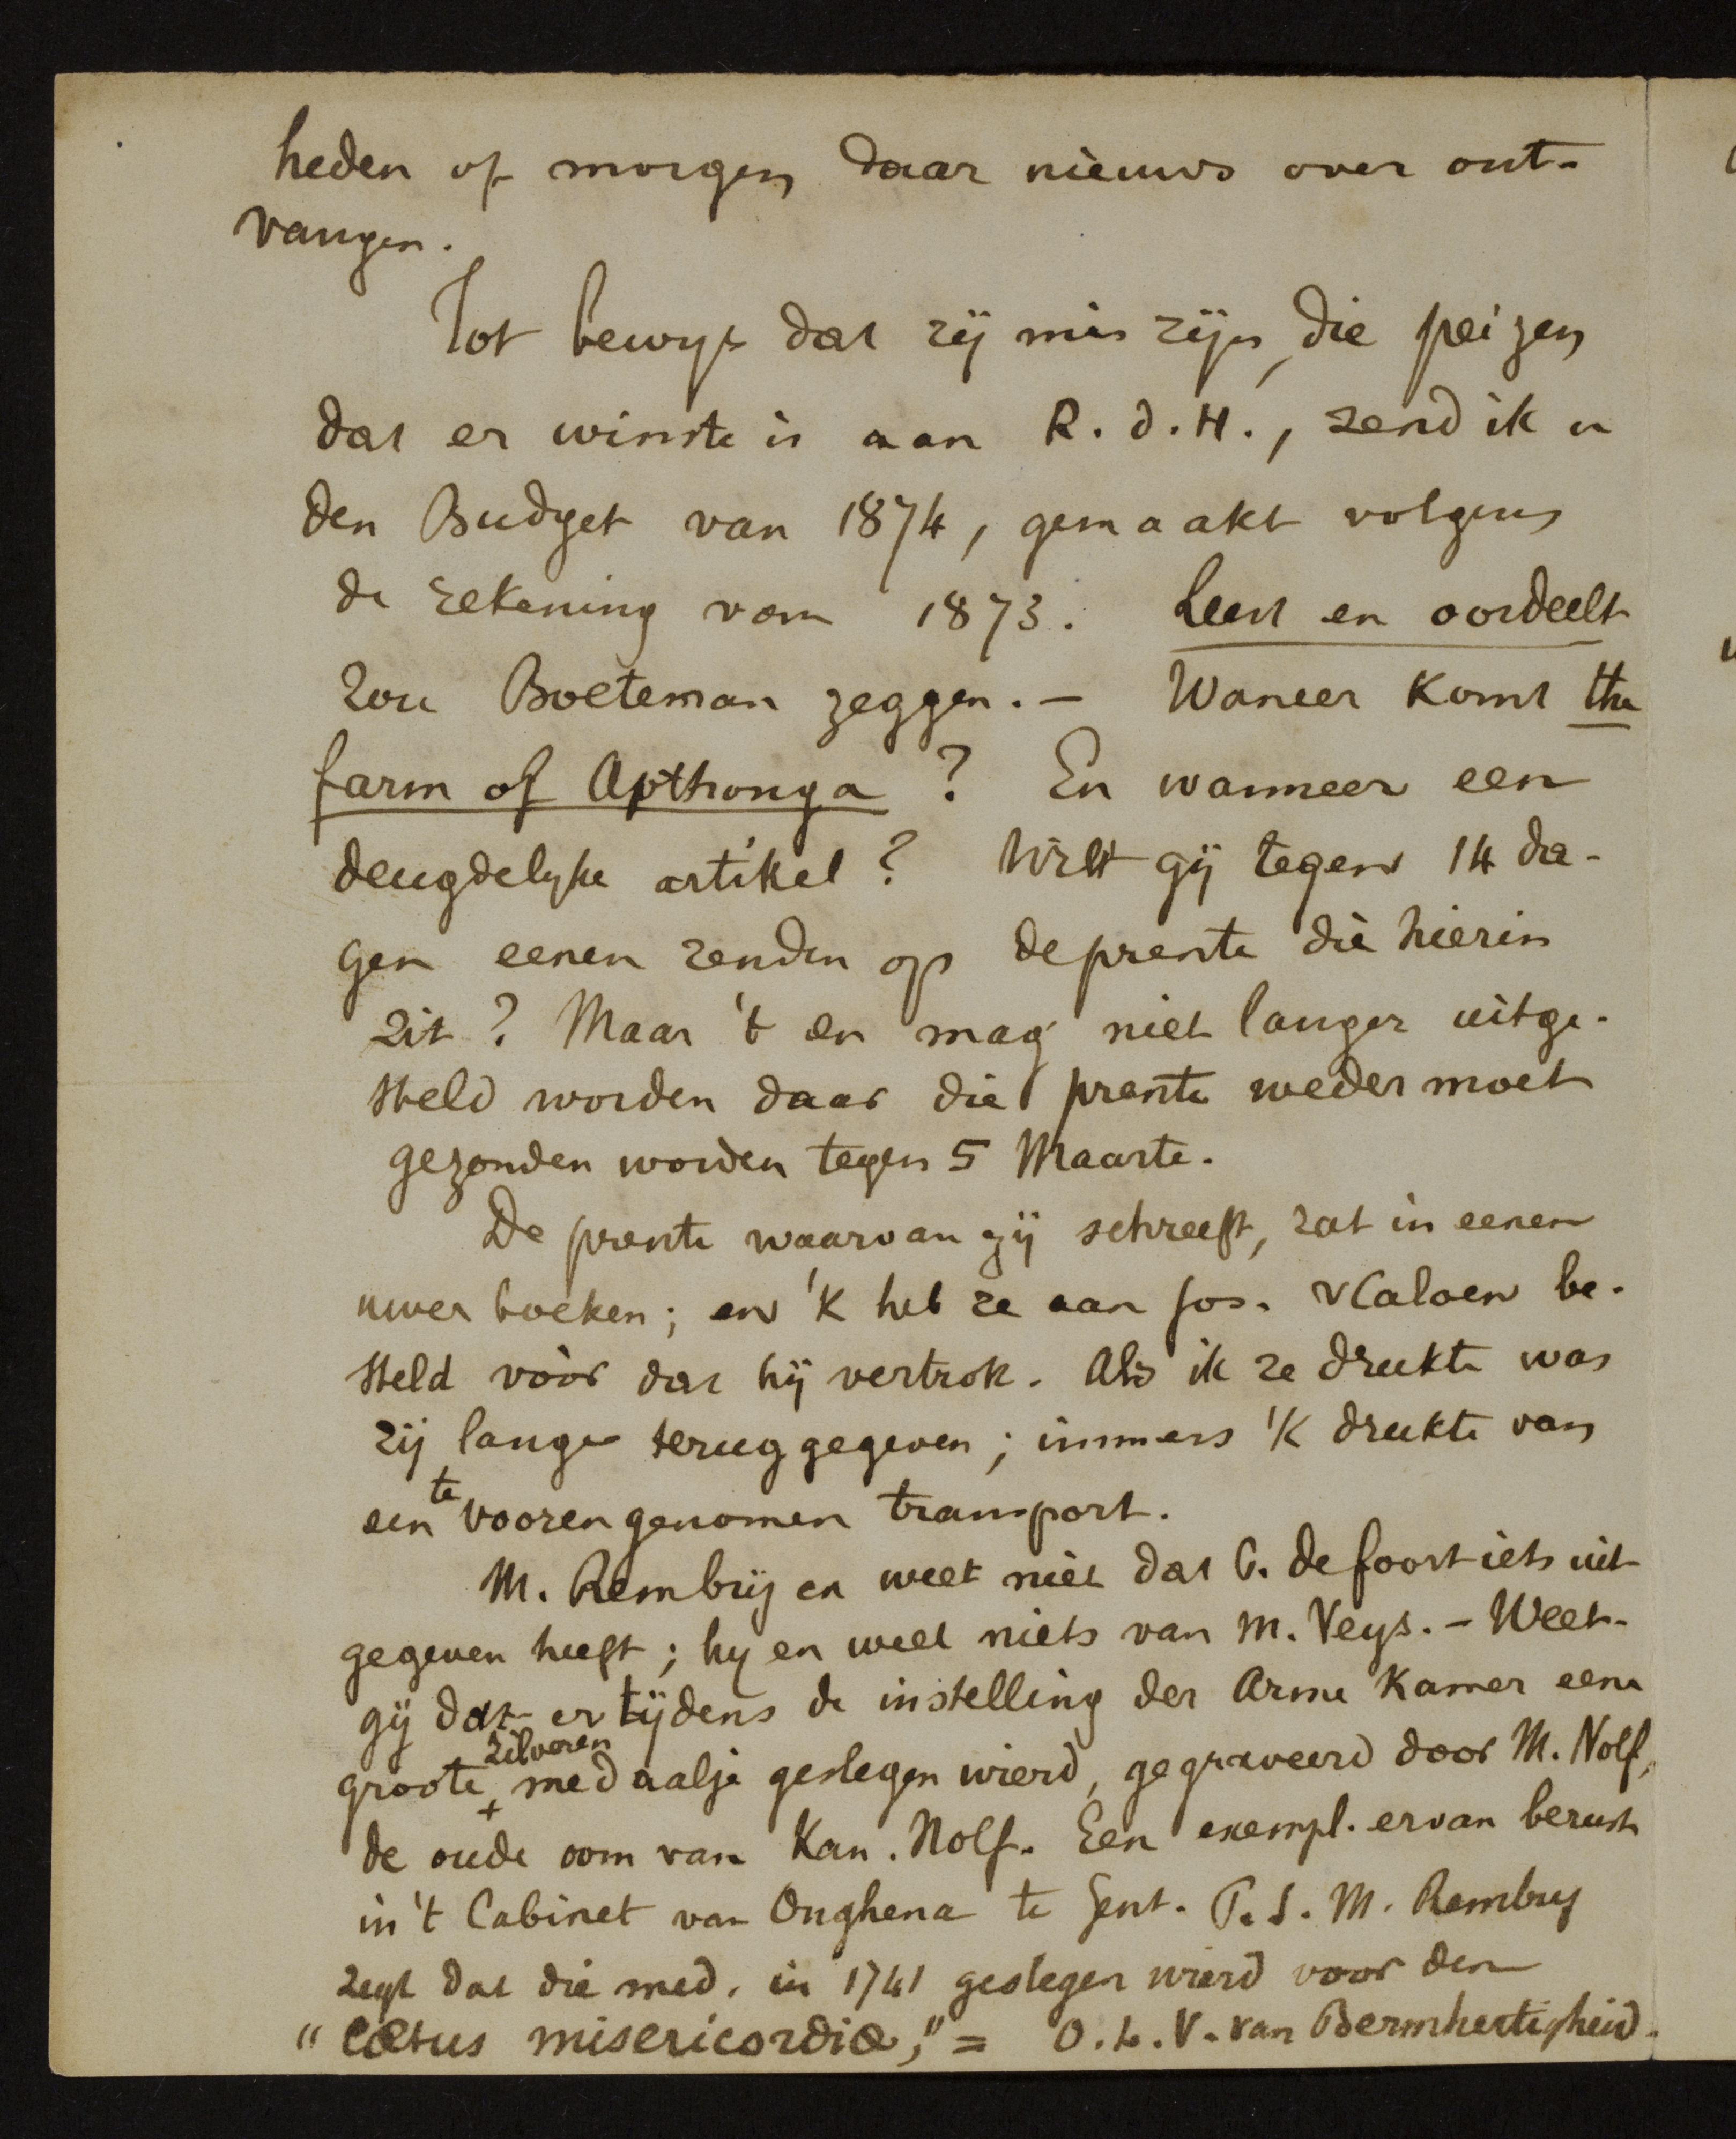 heden of morgen daar nieuws over ont-
vangen.
Tot bewys dat zij mis zijn, die peizen
dat er winste is aan R. d. H., zend ik u
den Budget van 1874, gemaakt volgens
de rekening van 1873. Leest en oordeelt
zou Boeteman zeggen. - Waneer komt the
farm of Apthonga ? En wanneer een
deugdelyke artikel ? Wilt gij tegen 14 da-
gen eenen zenden op de prente die hierin
zit ? Maar 't en mag niet langer uitge-
steld worden daar die prente weder moet
gezonden worden tegen 5 Maarte.
De prente waarvan gij schreeft, zat in eenen
uwer boeken; en 'k heb ze aan Jos. vCaloen be-
steld vòòr dat hij vertrok. Als ik ze drukte was
zij lange teruggegeven; immers 'k drukte van
een te vooren genomen transport.
M. Rembrij en weet niet dat C. de foort iets uit
gegeven heeft; hy en weet niets van M. Veys. - Weet-
gij dat er tijdens de instelling der Arme Kamer eene
groote zilveren medaalje geslegen wierd, gegraveerd door M. Nolf,
de oude oom van Kan. Nolf. Een exempl. ervan berust
in 't Cabinet van Onghena te Gent. P.S. M. Rembry
zegt dat die med. in 1741 geslegen wierd voor den
"Cœtus misericordiæ," = O. L. V. van Bermhertigheid.